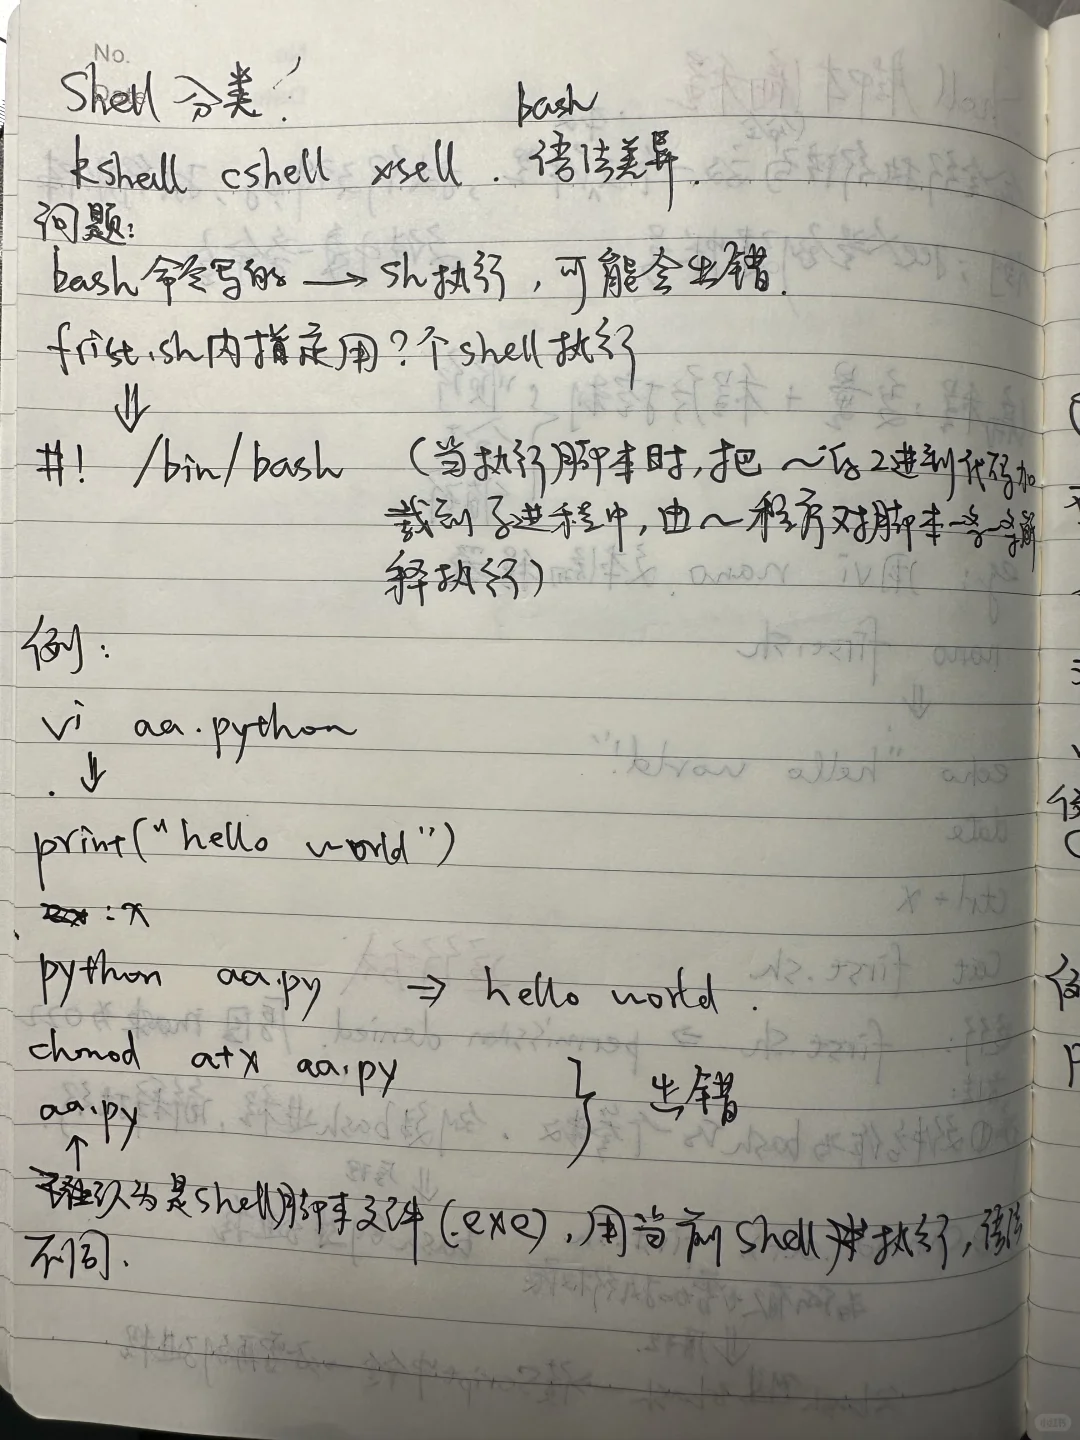 No.
Shell 分类:
bash
kshell cshell xsell . 语法差异.
问题:
bash命令写的 → sh执行, 可能会出错.
frist.sh内指定用?个shell执行
⇓
#! /bin/bash (当执行脚本时, 把 ~的2进制代码加
载到子进程中, 由~程序对脚本一条一条解
释执行)
例:
vi aa.python
⇓
print("hello world")
:x
python aa.py ⇒ hello world .
chmod a+x aa.py
} 出错
aa.py
↑
默认为是shell脚本文件(.exe), 用当前shell来执行, 语法
不同.